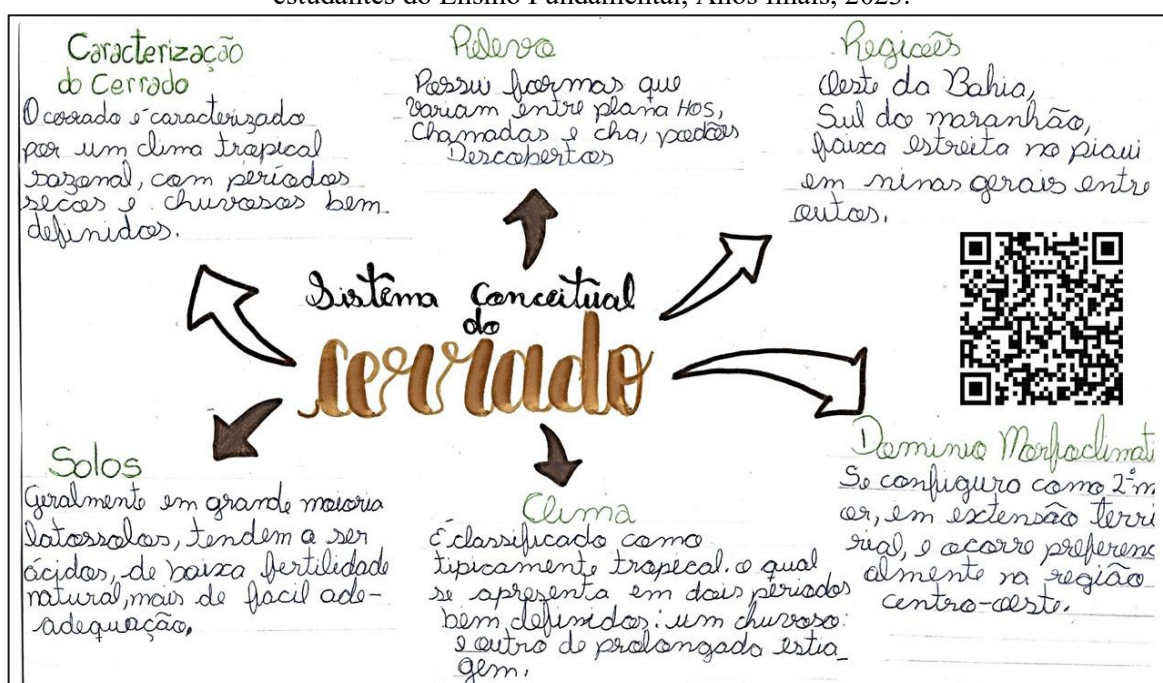 estudantes do Ensino Fundamental, Anos finais, 2023.
Caracterização
do Cerrado
O cerrado é caracterizado
por um clima tropical
sazonal, com períodos
secos e chuvosos bem
definidos.
Relevo
Possui formas que
variam entre plana Hos,
Chamadas e cha, padões
Descobertos
Regiões
Oeste da Bahia,
Sul do maranhão,
faixa estreita no piaui
em ninas gerais entre
outos.
Sistema Conceitual
do
cerrado
Solos
Geralmente em grande maioria
latossolos, tendem a ser
ácidos, de baixa fertilidade
natural, mais de facil ade-
adequação.
Clima
É classificado como
tipicamente tropical. o qual
se apresenta em dois períodos
bem definidos: um chuvoso.
e outro de prolongado estia_
gem.
Dominio Morfoclimati
Se configura como 2º m
or, em extensão terri
rial, e ocorre preferenc
almente na região
centro-oeste.